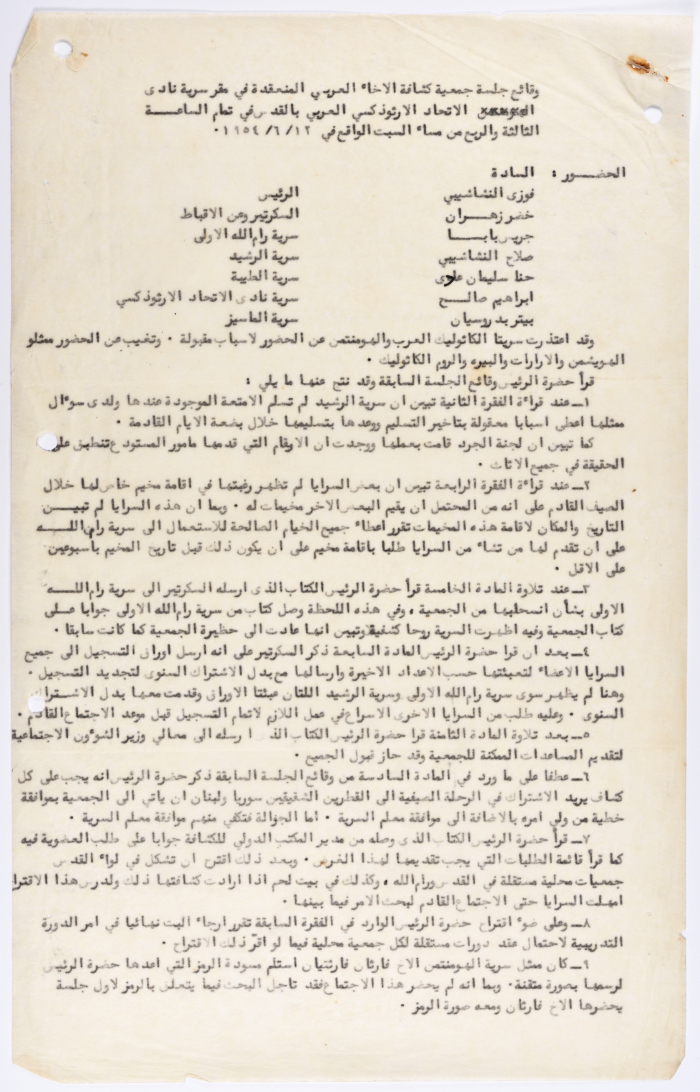 وقائع جلسة جمعية كشافة الاخاء العربي المنعقدة في مقر سرية نادى
الاتحاد الارثوذكسي العربي بالقدس في تمام الساعـــة
الثالثة والربع من مساء السبت الواقع في ١٢/٦/١٩٥٤٠
الحضـــور : السادة
فوزى النشاشيبي الرئيس
خضر زهــران السكرتير وعن الاقباط
جريس بابـــا سرية رام الله الاولى
صلاح النشاشيبي سرية الرشيد
حنا سليمان سرية الطيبة
ابراهيم صالــح سرية نادى الاتحاد الارثوذكسي
بيتر بدروسيان سرية الماسيز
وقد اعتذرت سريتا الكاثوليك العرب والهومنتمن عن الحضور لاسباب مقبولة ٠ وتغيب عن الحضور ممثلو
الهويشمن والارارات والبيره والروم الكاثوليك ٠
قرأ حضرة الرئيس وقائع الجلسة السابقة وقد نتج عنها ما يلي :
١ــ عند قراءة الفقرة الثانية تبين ان سرية الرشيد لم تسلم الامتعة الموجودة عندها ولدى سوءال
ممثلها اعطى اسبابا معقولة بتاخير التسليم ووعدها بتسليمها خلال بضعة الايام القادمة ٠
كما تبين ان لجنة الجرد قامت بعملها ووجدت ان الارقام التي قدمها مامور المستودع تنطبق على
الحقيقة في جميع الاثاث ٠
٢ــ عند قراءة الفقرة الرابعة تبين ان بعض السرايا لم تظهر رغبتها في اقامة مخيم خاص لها خلال
الصيف القادم على انه من المحتمل ان يقيم البعض الاخر مخيمات له ٠ وبما ان هذه السرايا لم تبيــن
التاريخ والمكان لاقامة هذه المخيمات تقرر اعطاء جميع الخيام الصالحة للاستعمال الى سرية رام اللــه
على ان تقدم لها من تشاء من السرايا طلبا باقامة مخيم على ان يكون ذلك قبل تاريخ المخيم باسبوعين
على الاقل ٠
٣ــ عند تلاوة المادة الخامسة قرأ حضرة الرئيس الكتاب الذى ارسله السكرتير الى سرية رام اللــه
الاولى بشأن انسحابها من الجمعية ، وفي هذه اللحظة وصل كتاب من سرية رام الله الاولى جوابا علــى
كتاب الجمعية وفيه اظهرت السرية روحا كشفية وتبين انها عادت الى حظيرة الجمعية كما كانت سابقا ٠
٤ــ بعد ان قرا حضرة الرئيس المادة السابعة ذكر السكرتير على انه ارسل اوراق التسجيل الى جميع
السرايا الاعضاء لتعبئتها حسب الاعداد الاخيرة وارسالها مع بدل الاشتراك السنوى لتجديد التسجيل ٠
وهنا لم يظهر سوى سرية رام الله الاولى وسرية الرشيد اللتان عبئتا الاوراق وقدمت معها بدل الاشــتراك
السنوى ٠ وعليه طلب من السرايا الاخرى الاسراع في عمل اللازم لاتمام التسجيل قبل موعد الاجتماع القادم ٠
٥ــ بعد تلاوة المادة الثامنة قرا حضرة الرئيس الكتاب الذى ارسله الى معالي وزير الشوءون الاجتماعية
لتقديم المساعدات الممكنة للجمعية وقد حاز قبول الجميع ٠
٦ــ عطفا على ما ورد في المادة السادسة من وقائع الجلسة السابقة ذكر حضرة الرئيس انه يجب على كل
كشاف يريد الاشتراك في الرحلة الصيفية الى القطرين الشقيقين سوريا ولبنان ان ياتي الى الجمعية بموافقة
خطية من ولي امره بالاضافة الى موافقة معلم السرية ٠ اما الجوالة فتكفي منهم موافقة معلم السرية ٠
٧ــ قرأ حضرة الرئيس الكتاب الذى وصله من مدير المكتب الدولي للكشافة جوابا على طلب العضوية فيه
كما قرأ قائمة الطلبات التي يجب تقديمها لهذا الغرض ٠ وبعد ذلك اقترح ان تشكل في لواء القدس
جمعيات محلية مستقلة في القدس ورام الله ، وكذلك في بيت لحم اذا ارادت كشافتها ذلك ولدرس هذا الاقترا
امهلت السرايا حتى الاجتماع القادم لبحث الامر فيما بينها ٠
٨ــ وعلى ضوء اقتراح حضرة الرئيس الوارد في الفقرة السابقة تقرر ارجاء البت نهائيا في امر الدورة
التدريبية لاحتمال عقد دورات مستقلة لكل جمعية محلية فيما لو اقرّ ذلك الاقتراح ٠
٩ــ كان ممثل سرية الهومنتمن الاخ فارتان فارتنيان استلم مسودة الرمز التي اعدها حضرة الرئيس
لرسمها بصورة متقنة ٠ وبما انه لم يحضر هذا الاجتماع فقد تاجل البحث فيما يتعلق بالرمز لاول جلسة
يحضرها الاخ فارتان ومعه صورة الرمز ٠